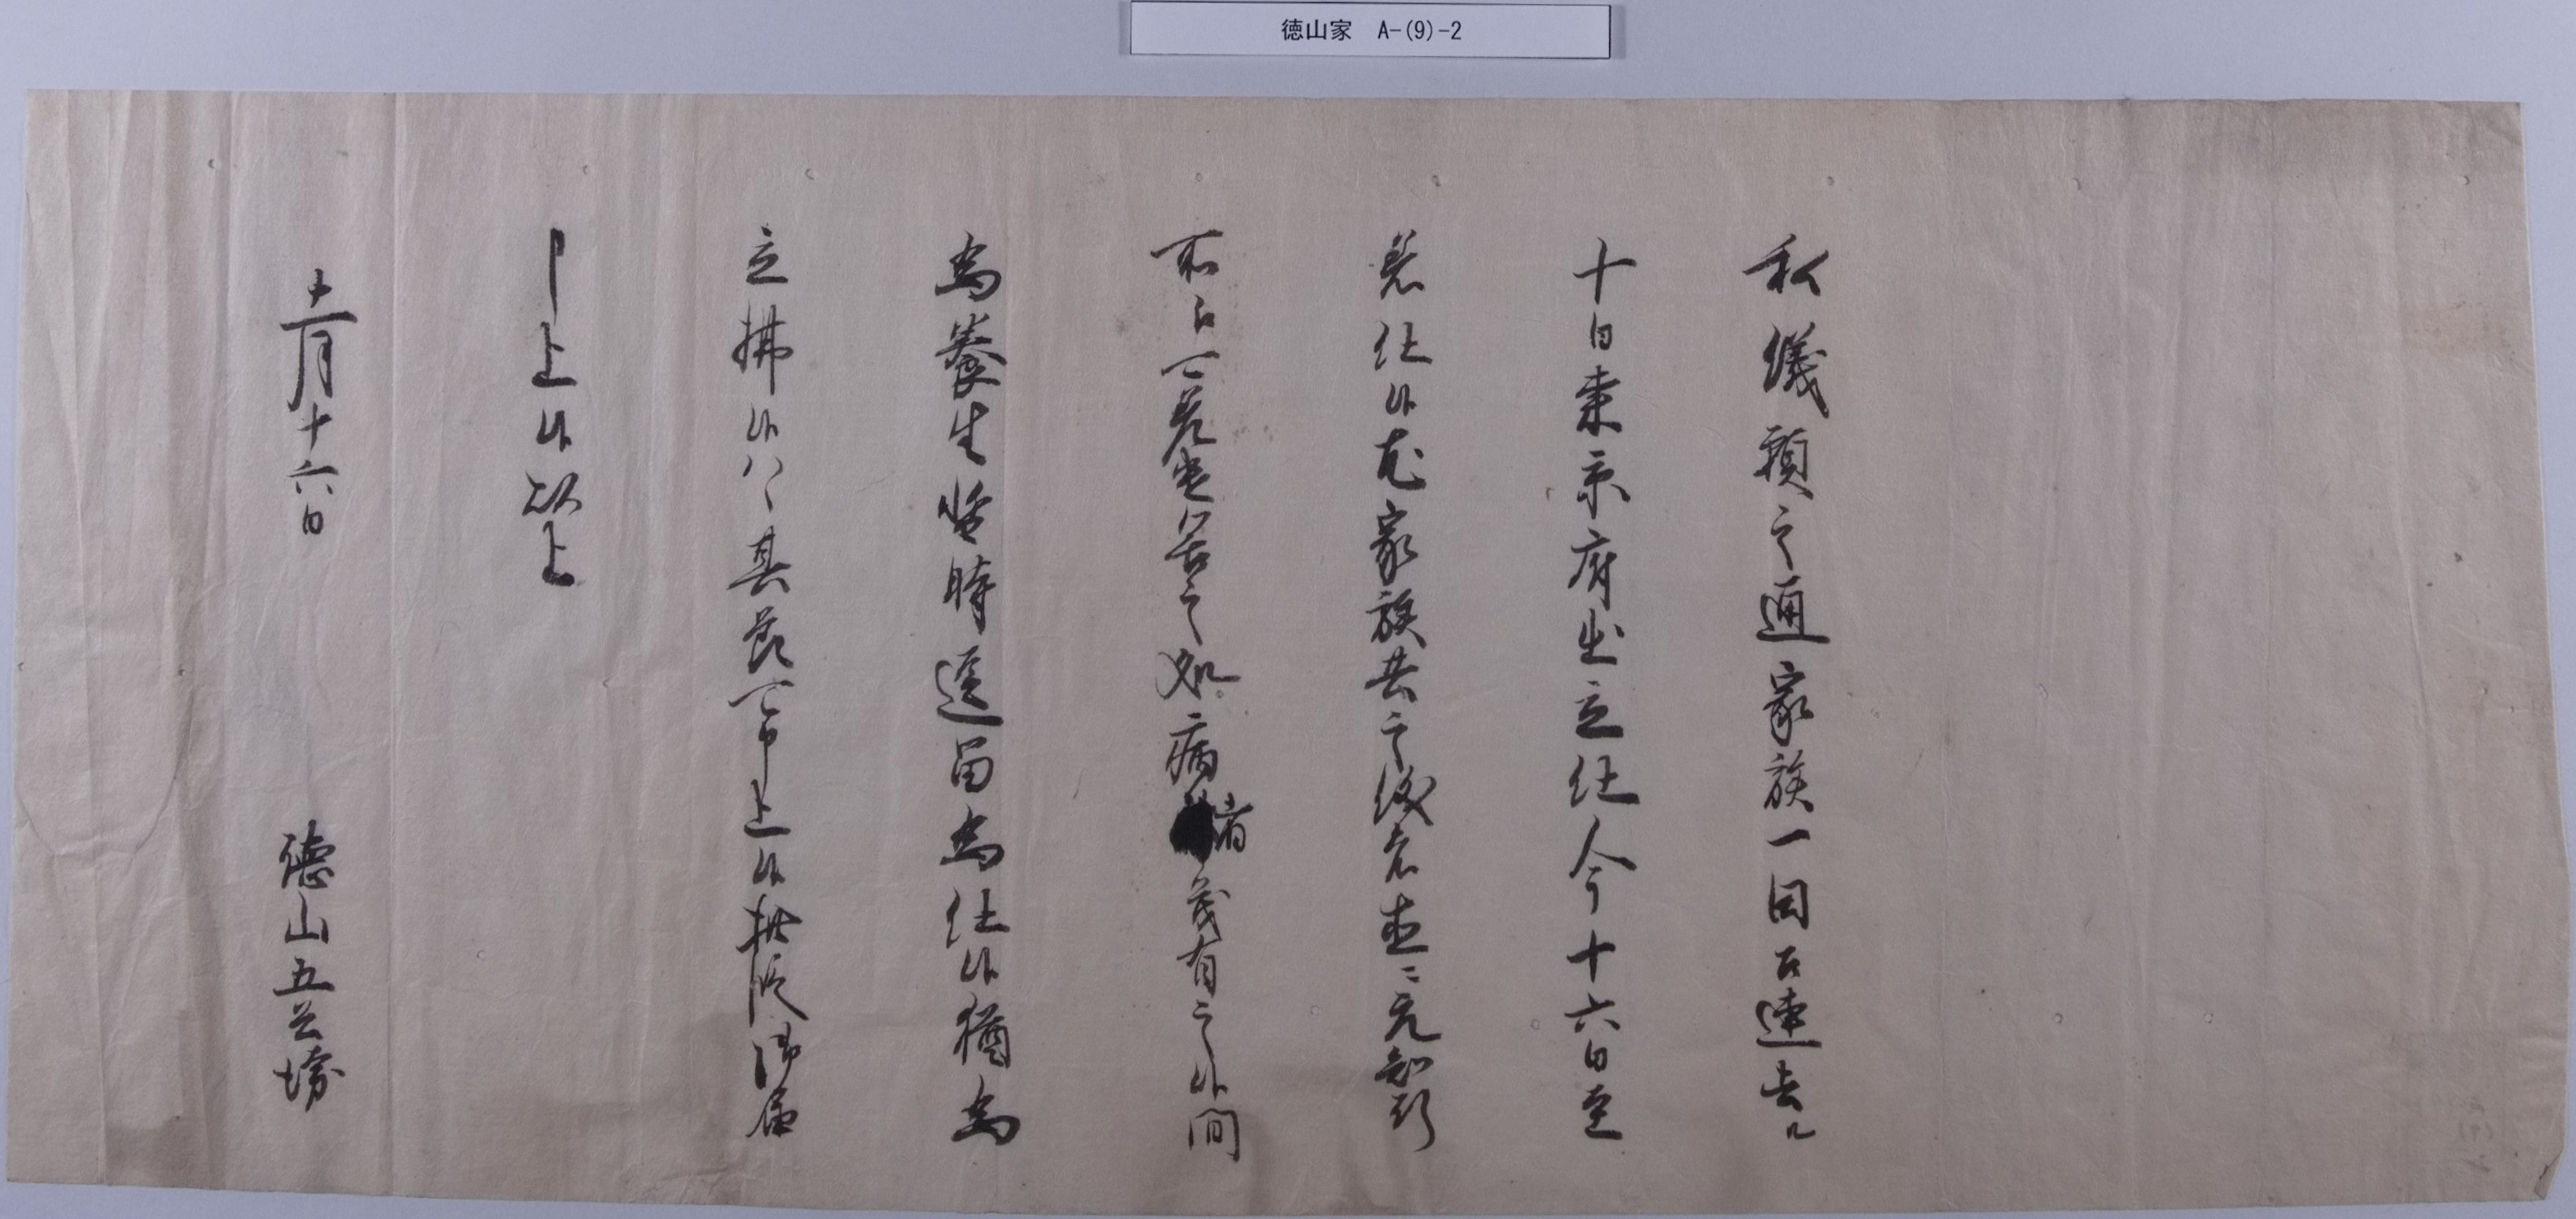 徳山家　A-(9)-2
私儀願之通家族一同召連去ル
十日東京府出立仕今十六日到
着仕候尤家族共之儀者直ニ元知行
所江可差出筈之処病者茂有之候間
為養生暫時逗留為仕候猶為
立払候ハヽ其節可申上候此段御届
申上候以上
十一月十六日　徳山五兵衛